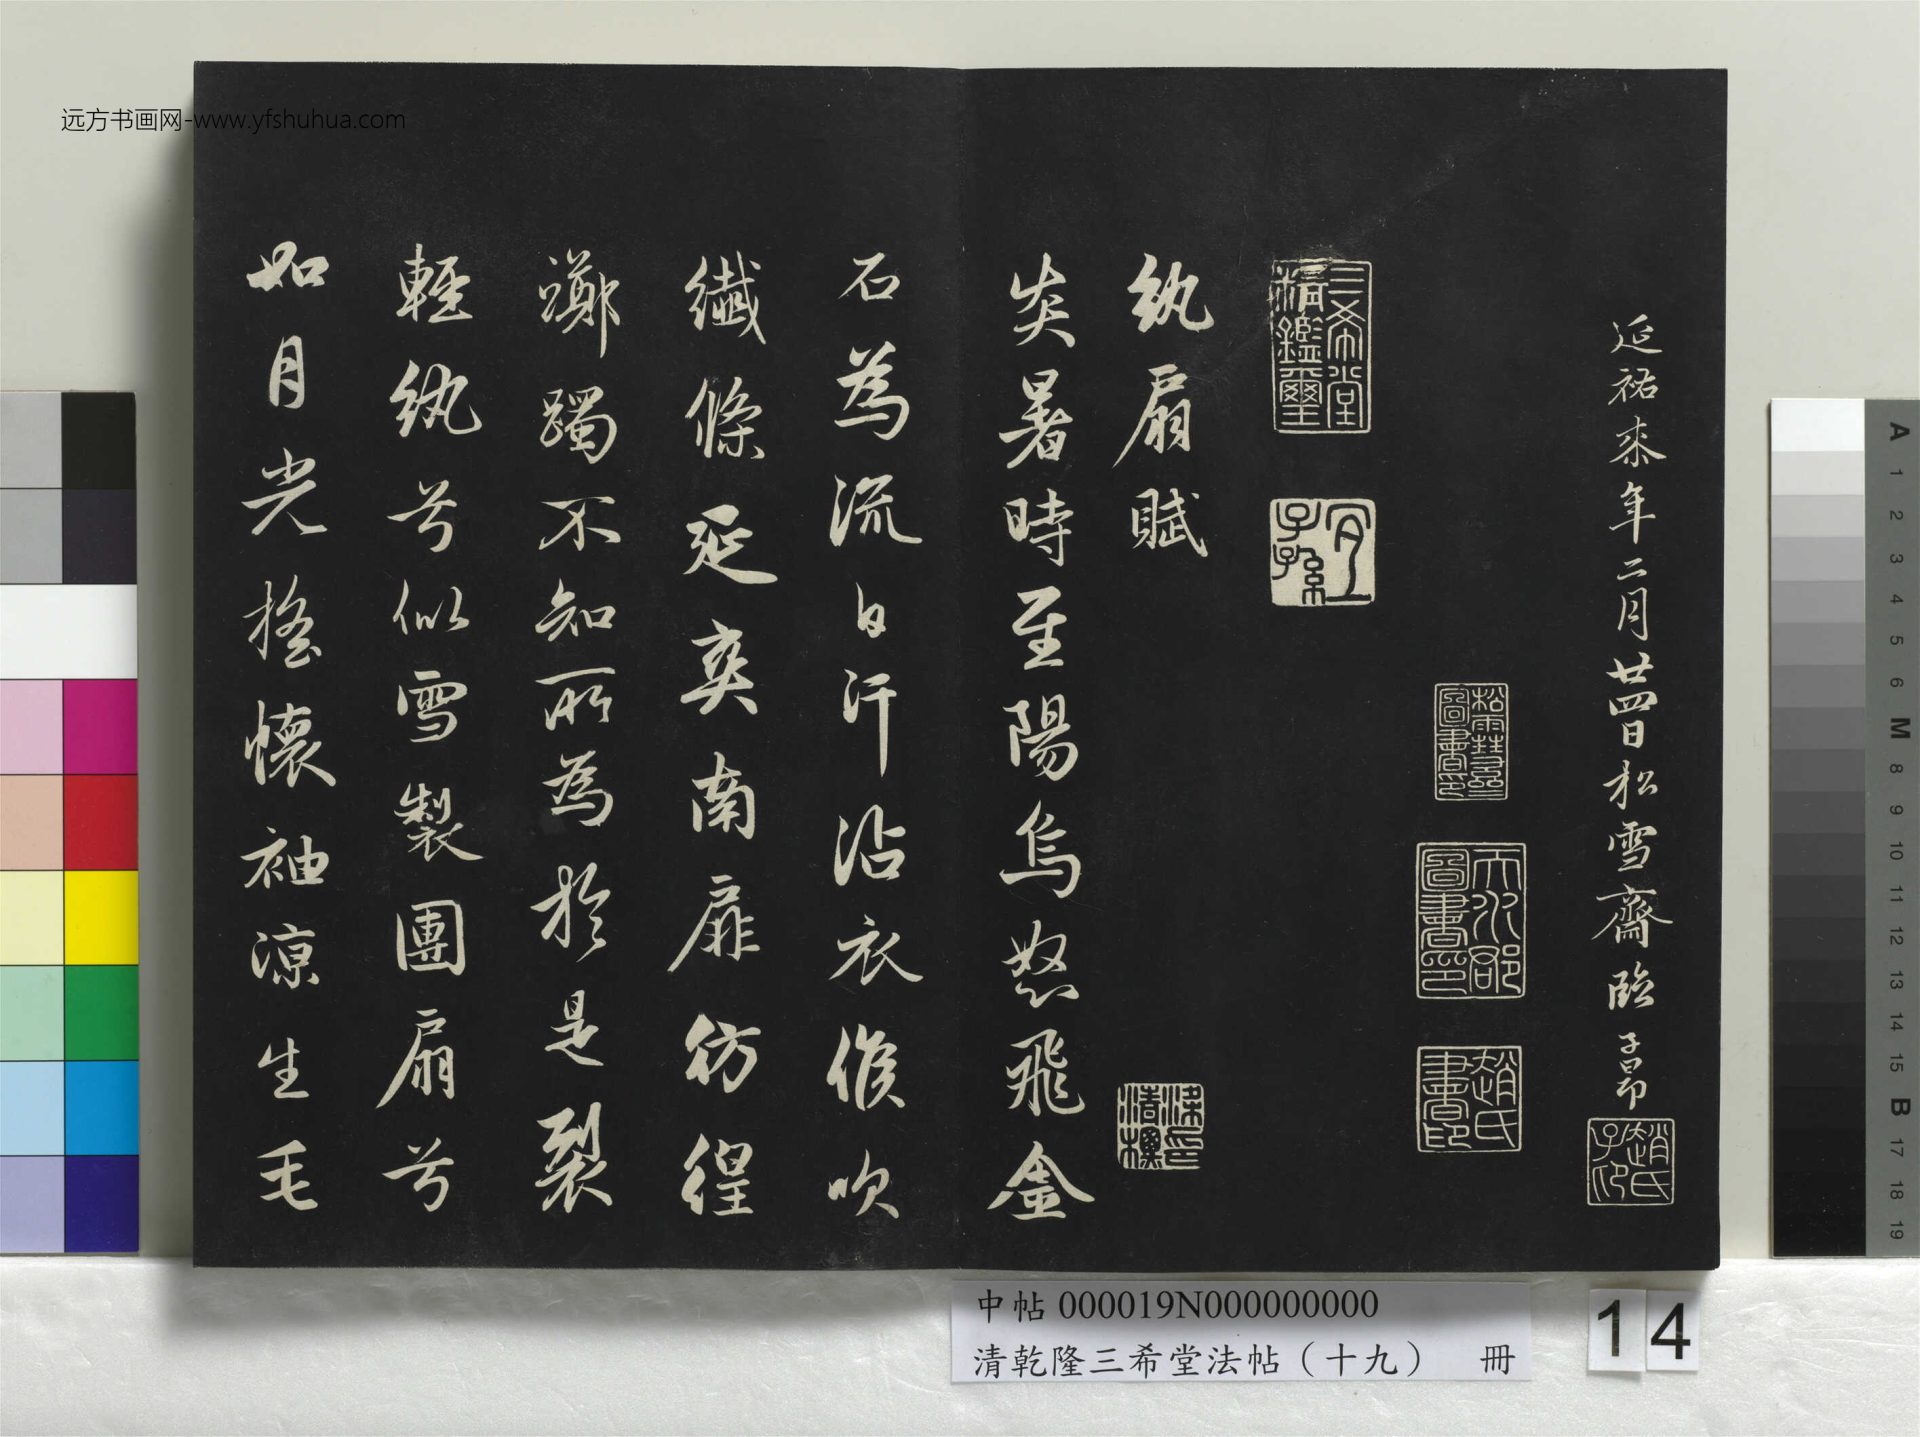 远方书画网-www.yfshuhua.com
延祐柒年二月廿四日松雪齋臨子昂
趙氏子印
松雪齋圖書印
天水郡圖書印
趙氏書印
三希堂精鑑璽
宜子孫
紈扇賦
炎暑時至陽烏怒飛金
石為流日汗沾衣倏吹
纖絛延奕南扉彷徨
躑躅不知所為於是裂
輕紈兮似雪製團扇兮
如月光搖懷袖凉生毛
中帖 000019N000000000
清乾隆三希堂法帖（十九） 冊
14
A
1
2
3
4
5
6
M
8
9
10
11
12
13
14
15
B
17
18
19